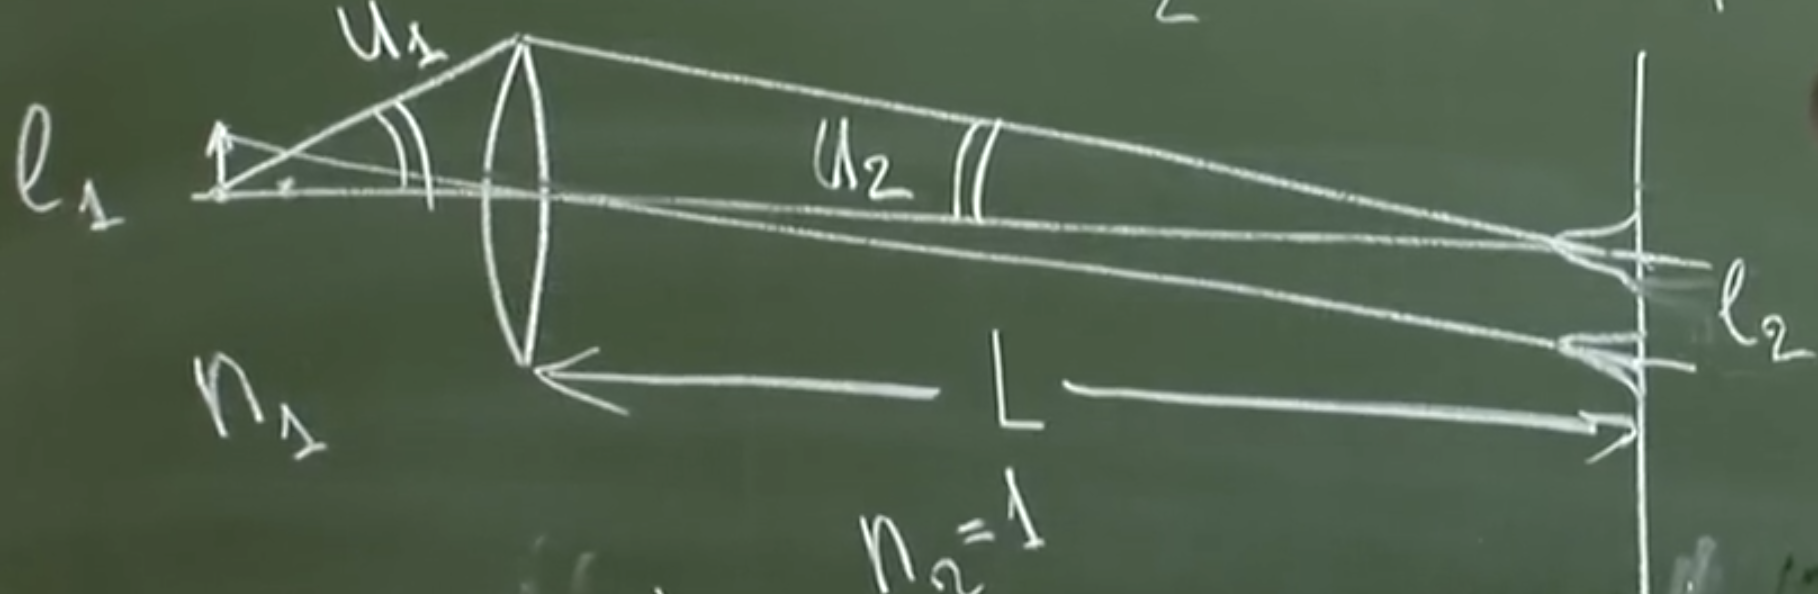 u₁
l₁
u₂
l₂
n₁
L
n₂=1